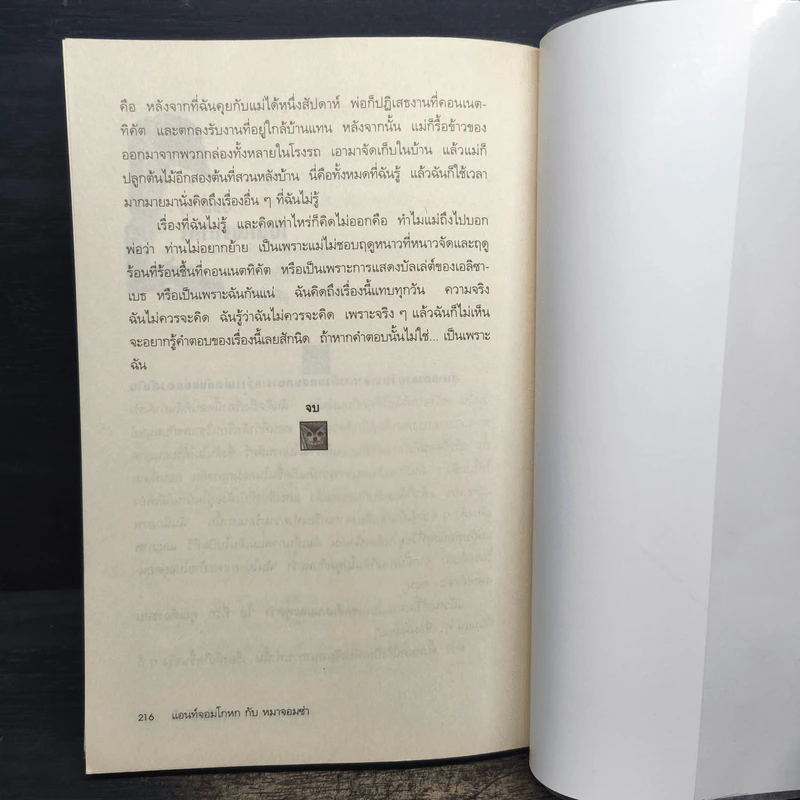 คือ หลังจากที่ฉันคุยกับแม่ได้หนึ่งสัปดาห์ พ่อก็ปฏิเสธงานที่คอนเนต-
ทิคัต และตกลงรับงานที่อยู่ใกล้บ้านแทน หลังจากนั้น แม่ก็รื้อข้าวของ
ออกมาจากพวกกล่องทั้งหลายในโรงรถ เอามาจัดเก็บในบ้าน แล้วแม่ก็
ปลูกต้นไม้อีกสองต้นที่สวนหลังบ้าน นี่คือทั้งหมดที่ฉันรู้ แล้วฉันก็ใช้เวลา
มากมายมานั่งคิดถึงเรื่องอื่น ๆ ที่ฉันไม่รู้
เรื่องที่ฉันไม่รู้ และคิดเท่าไหร่ก็คิดไม่ออกคือ ทำไมแม่ถึงไปบอก
พ่อว่า ท่านไม่อยากย้าย เป็นเพราะแม่ไม่ชอบฤดูหนาวที่หนาวจัดและฤดู
ร้อนที่ร้อนชื้นที่คอนเนตทิคัต หรือเป็นเพราะการแสดงบัลเล่ต์ของเอลิซา-
เบธ หรือเป็นเพราะฉันกันแน่ ฉันคิดถึงเรื่องนี้แทบทุกวัน ความจริง
ฉันไม่ควรจะคิด ฉันรู้ว่าฉันไม่ควรจะคิด เพราะจริง ๆ แล้วฉันก็ไม่เห็น
จะอยากรู้คำตอบของเรื่องนี้เลยสักนิด ถ้าหากคำตอบนั้นไม่ใช่... เป็นเพราะ
ฉัน
จบ
216 แอนท์จอมโกหก กับ หมาจอมซ่า